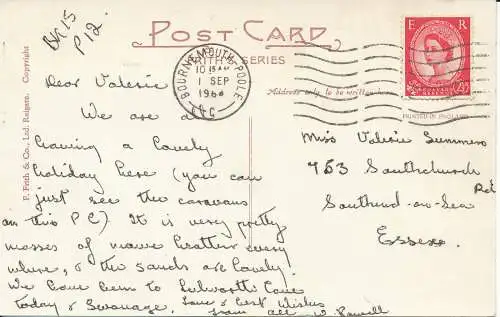 BK 15
P 12.
POST CARD
FRITH'S SERIES
BOURNEMOUTH-POOLE
1 SEP
E R
POSTAGE REVENUE
Address only to be written here
PRINTED IN ENGLAND
F. Frith & Co., Ltd. Reigate. Copyright
Dear Valerie
We are all
having a lovely
holiday here (you can
just see the caravans
on this P.C.) It is very pretty
masses of mauve heather every
where, & the sands are lovely.
We have been to Lulworth Cove
today & Swanage. Love & best Wishes
from all
Miss Valerie Summers
753 Southchurch
Rd
Southend-on-Sea
Essex.